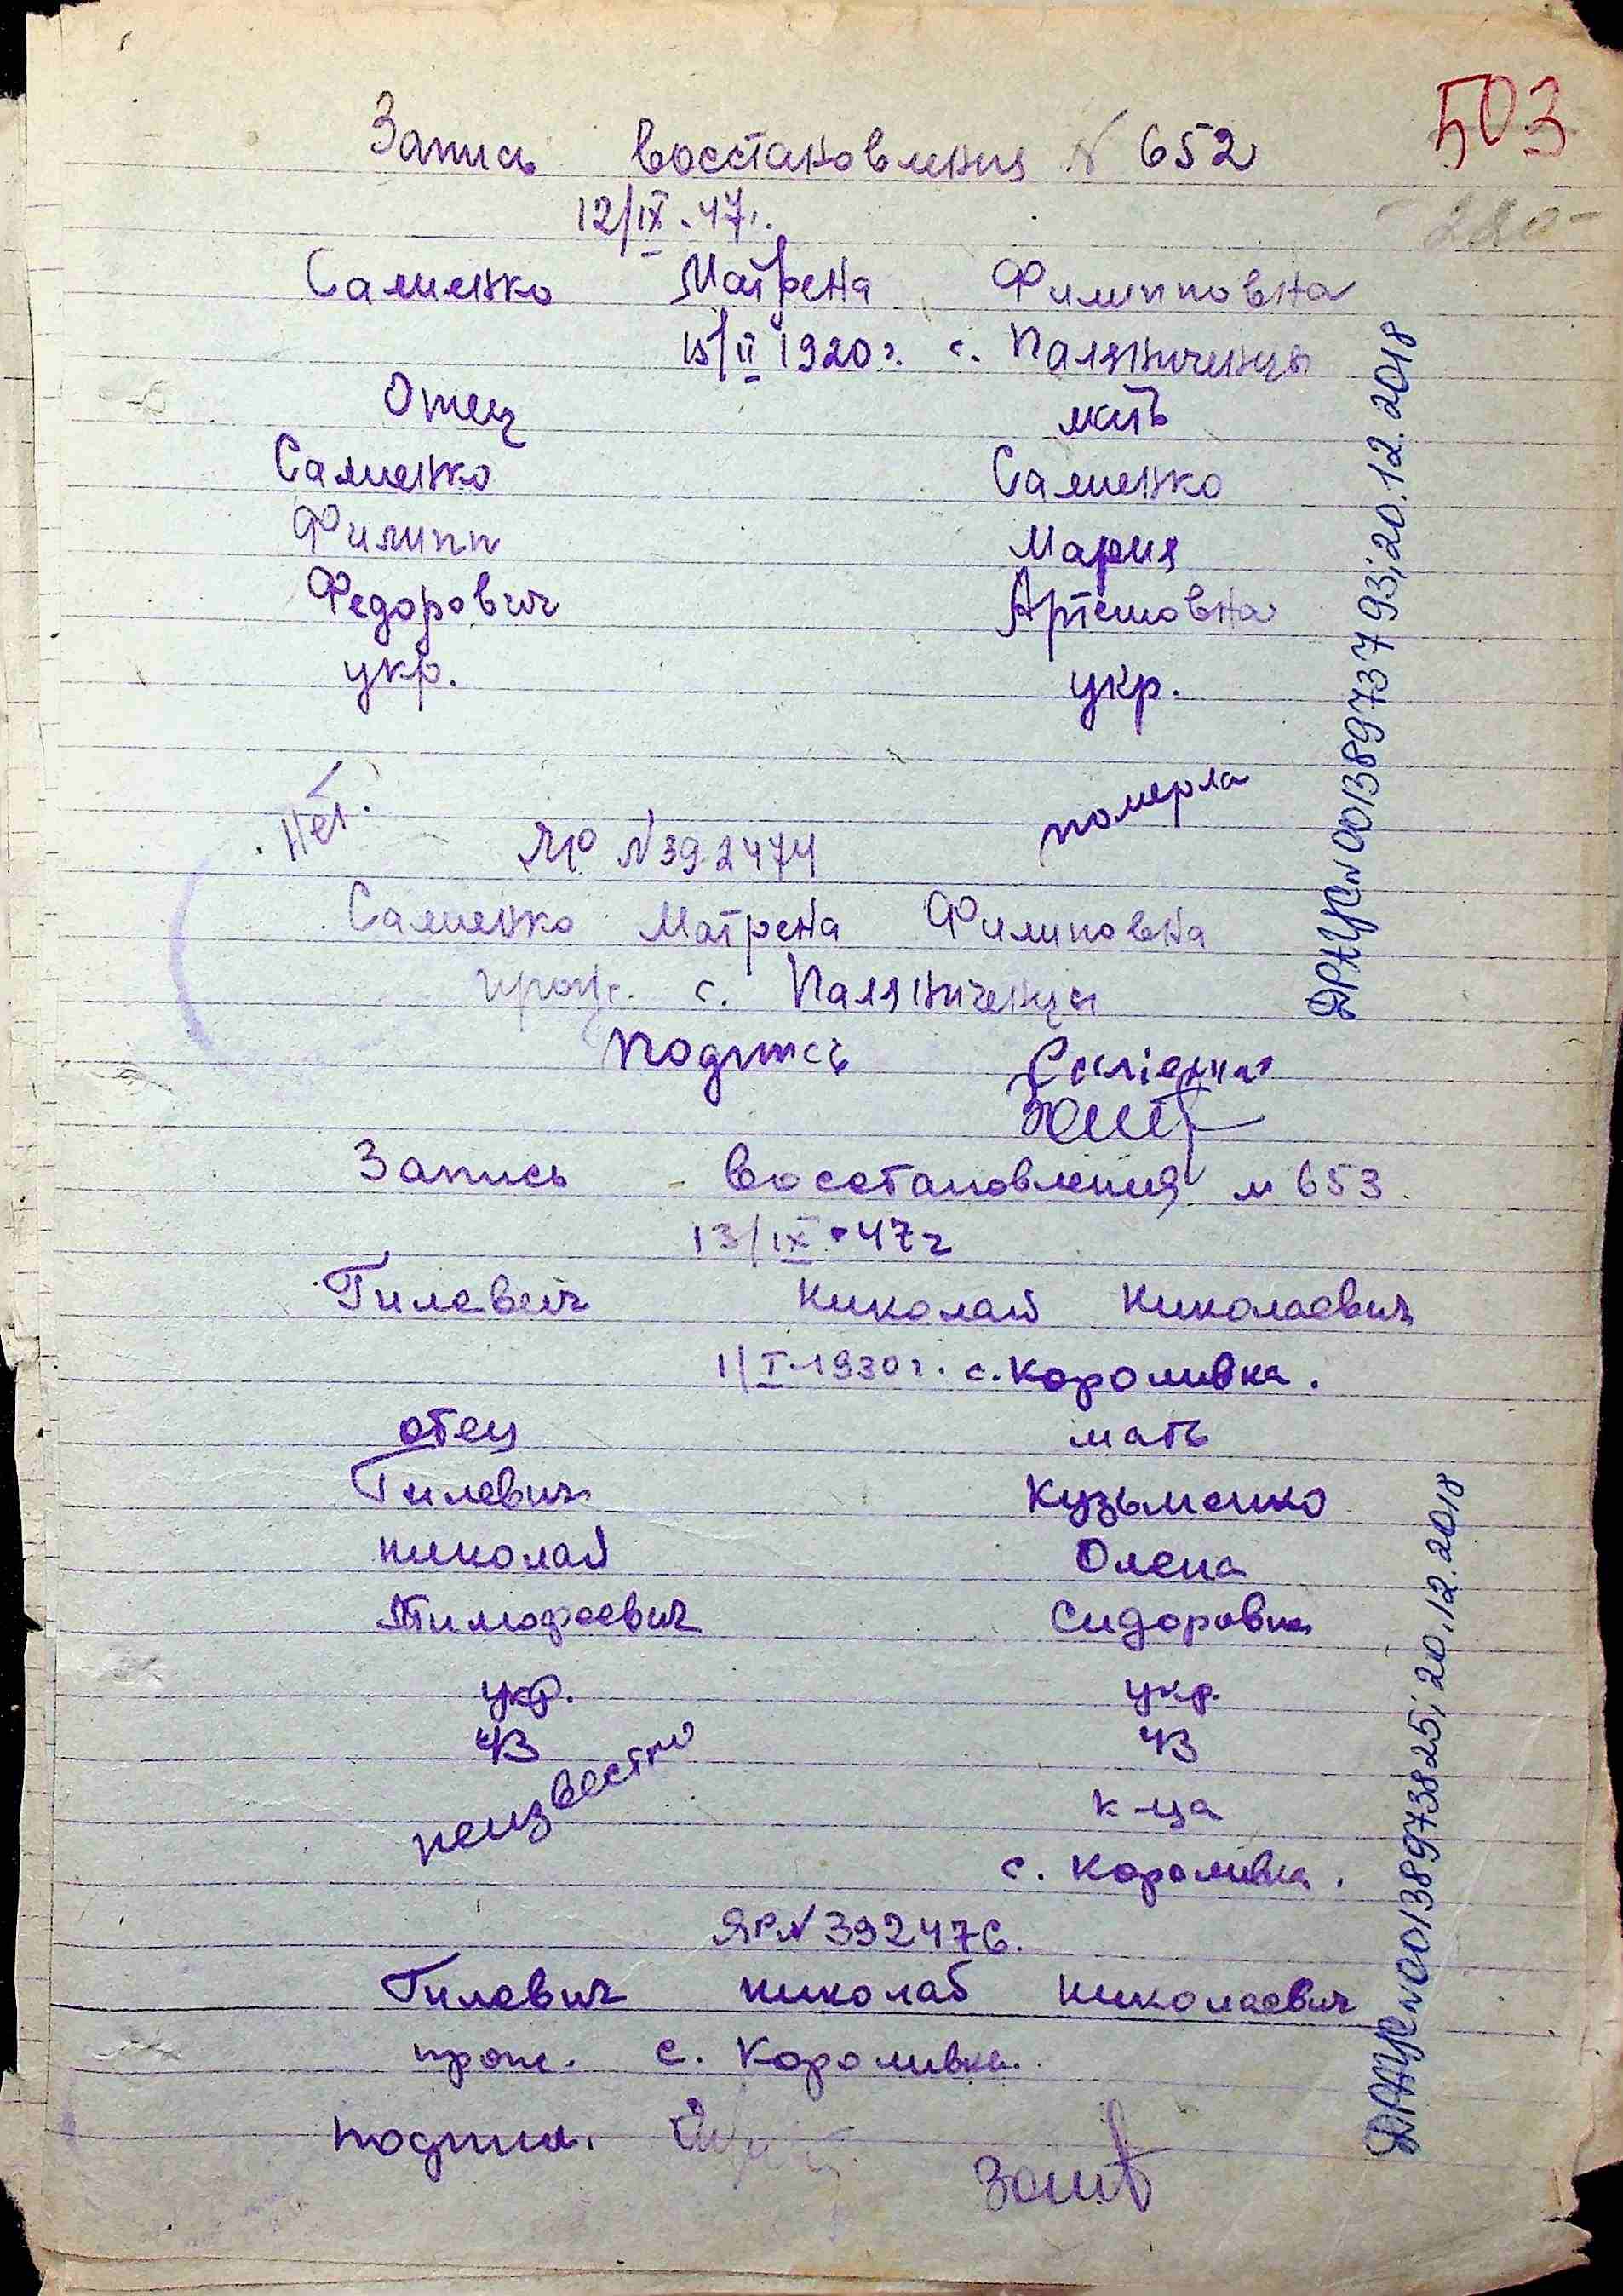 503
Запись восстановления N 652
12/IX. 47г.
- 280 -
Салиенко Матрена Филипповна
15/II 1920 г. с. Паляниченцы
Отец мать
Салиенко Салиенко
Филипп Мария
Федорович Артемовна
укр. укр.
Нет. померла
ЯР N 392474
Салиенко Матрена Филиповна
прож. с. Паляниченцы
подпись Салієнко
Запись восстановления N 653.
13/IX 47 г
Гилевич Николай Николаевич
1/I-1930 г. с. Короливка.
отец мать
Гилевич Кузьменко
Николай Олена
Тимофеевич Сидоровна
укр. укр.
43 43
неизвестно к-ца
с. Короливка.
ЯР N 392476.
Гилевич Николай Николаевич
прож. с. Короливка.
подпись.
ДРАЦС N 00138973793; 20.12.2018
ДРАЦС N 00138973825; 20.12.2018